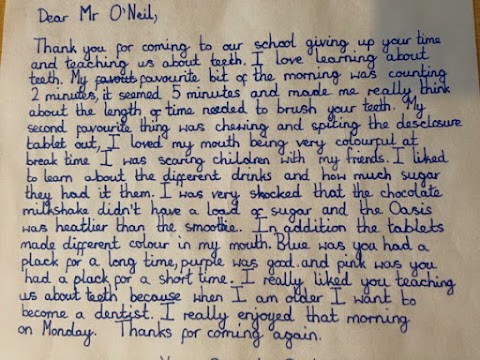 Dear Mr O'Neil,
Thank you for coming to our school giving up your time
and teaching us about teeth. I love learning about
teeth. My favout favourite bit of the morning was counting
2 minutes, it seemed 5 minutes and made me really think
about the length of time needed to brush your teeth. My
second favourite thing was chewing and spiting the desclosure
tablet out, I loved my mouth being very colourful at
break time I was scaring children with my friends. I liked
to learn about the different drinks and how much sugar
they had it them. I was very shocked that the chocolate
milkshake didn't have a load of sugar and the Oasis
was heatlier than the smoothie. In addition the tablets
made different colour in my mouth. Blue was you had a
plack for a long time, purple was good and pink was you
had a plack for a short time. I really liked you teaching
us about teeth because when I am older I want to
become a dentist. I really enjoyed that morning
on Monday. Thanks for coming again.